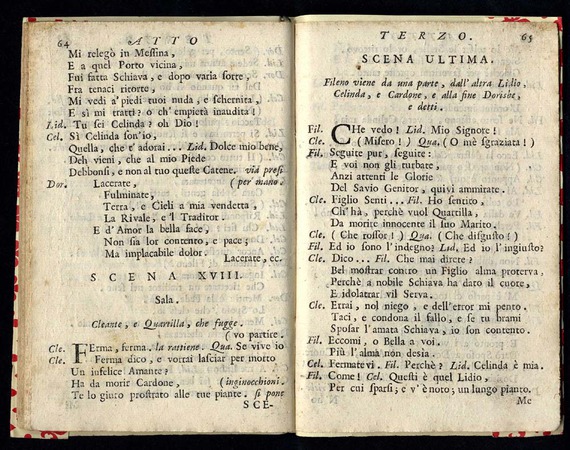 64 ATTO
Mi relegò in Messina,
E a quel Porto vicina,
Fui fatta Schiava, e dopo varia sorte,
Fra tenaci ritorte,
Mi vedi a' piedi tuoi nuda, e schernita,
E sì mi tratti? o ch' empietà inaudita!
Lid. Tu sei Celinda? oh Dio!
Cel. Sì Celinda son'io,
Quella, che t' adorai... Lid. Dolce mio bene,
Deh vieni, che al mio Piede
Debbonsi, e non al tuo queste Catene. via presi
Dor. Lacerate, (per mano.
Fulminate,
Terra, e Cieli a mia vendetta,
La Rivale, e 'l Traditor.
E d' Amor la bella face,
Non sia lor contento, e pace;
Ma implacabile dolor.
Lacerate, ec.
SCENA XVIII.
Sala.
Cleante, e Quartilla, che fugge.
(vo partire.
Cle. FErma, ferma. la rattiene. Qua. Se vive io
Cle. Ferma dico, e vorrai lasciar per morto
Un infelice Amante?
Ha da morir Cardone, (inginocchioni.
Te lo giuro prostrato alle tue piante. si pone
SCE-
TERZO. 65
SCENA ULTIMA.
Fileno viene da una parte, dall' altra Lidio,
Celinda, e Cardone, e alla fine Dorisbe,
e detti.
Fil. CHe vedo! Lid. Mio Signore!
Cle. (Misero!) Qua. (O me sgraziata!)
Fil. Seguite pur, seguite:
E voi non gli turbate,
Anzi attenti le Glorie
Del Savio Genitor, quivi ammirate.
Cle. Figlio Senti... Fil. Ho sentito,
Ch' hà, perchè vuol Quartilla,
Da morire innocente il suo Marito.
Cle. (Che rossor!) Qua. (Che disgusto!)
Fil. Ed io sono l' indegno? Lid. Ed io l' ingiusto?
Cle. Dico... Fil. Che mai direte?
Bel mostrar contro un Figlio alma proterva,
Perchè a nobile Schiava ha dato il cuore,
E idolatrar vil Serva.
Cle. Errai, nol niego, e dell' error mi pento.
Taci, e condona il fallo, e se tu brami
Sposar l' amata Schiava, io son contento.
Fil. Eccomi, o Bella a voi.
Più l' alma non desia.
Cel. Fermatevi. Fil. Perchè? Lid. Celinda è mia.
Fil. Come! Cel. Questi è quel Lidio,
Per cui sparsi; e v' è noto; un lungo pianto.
Me